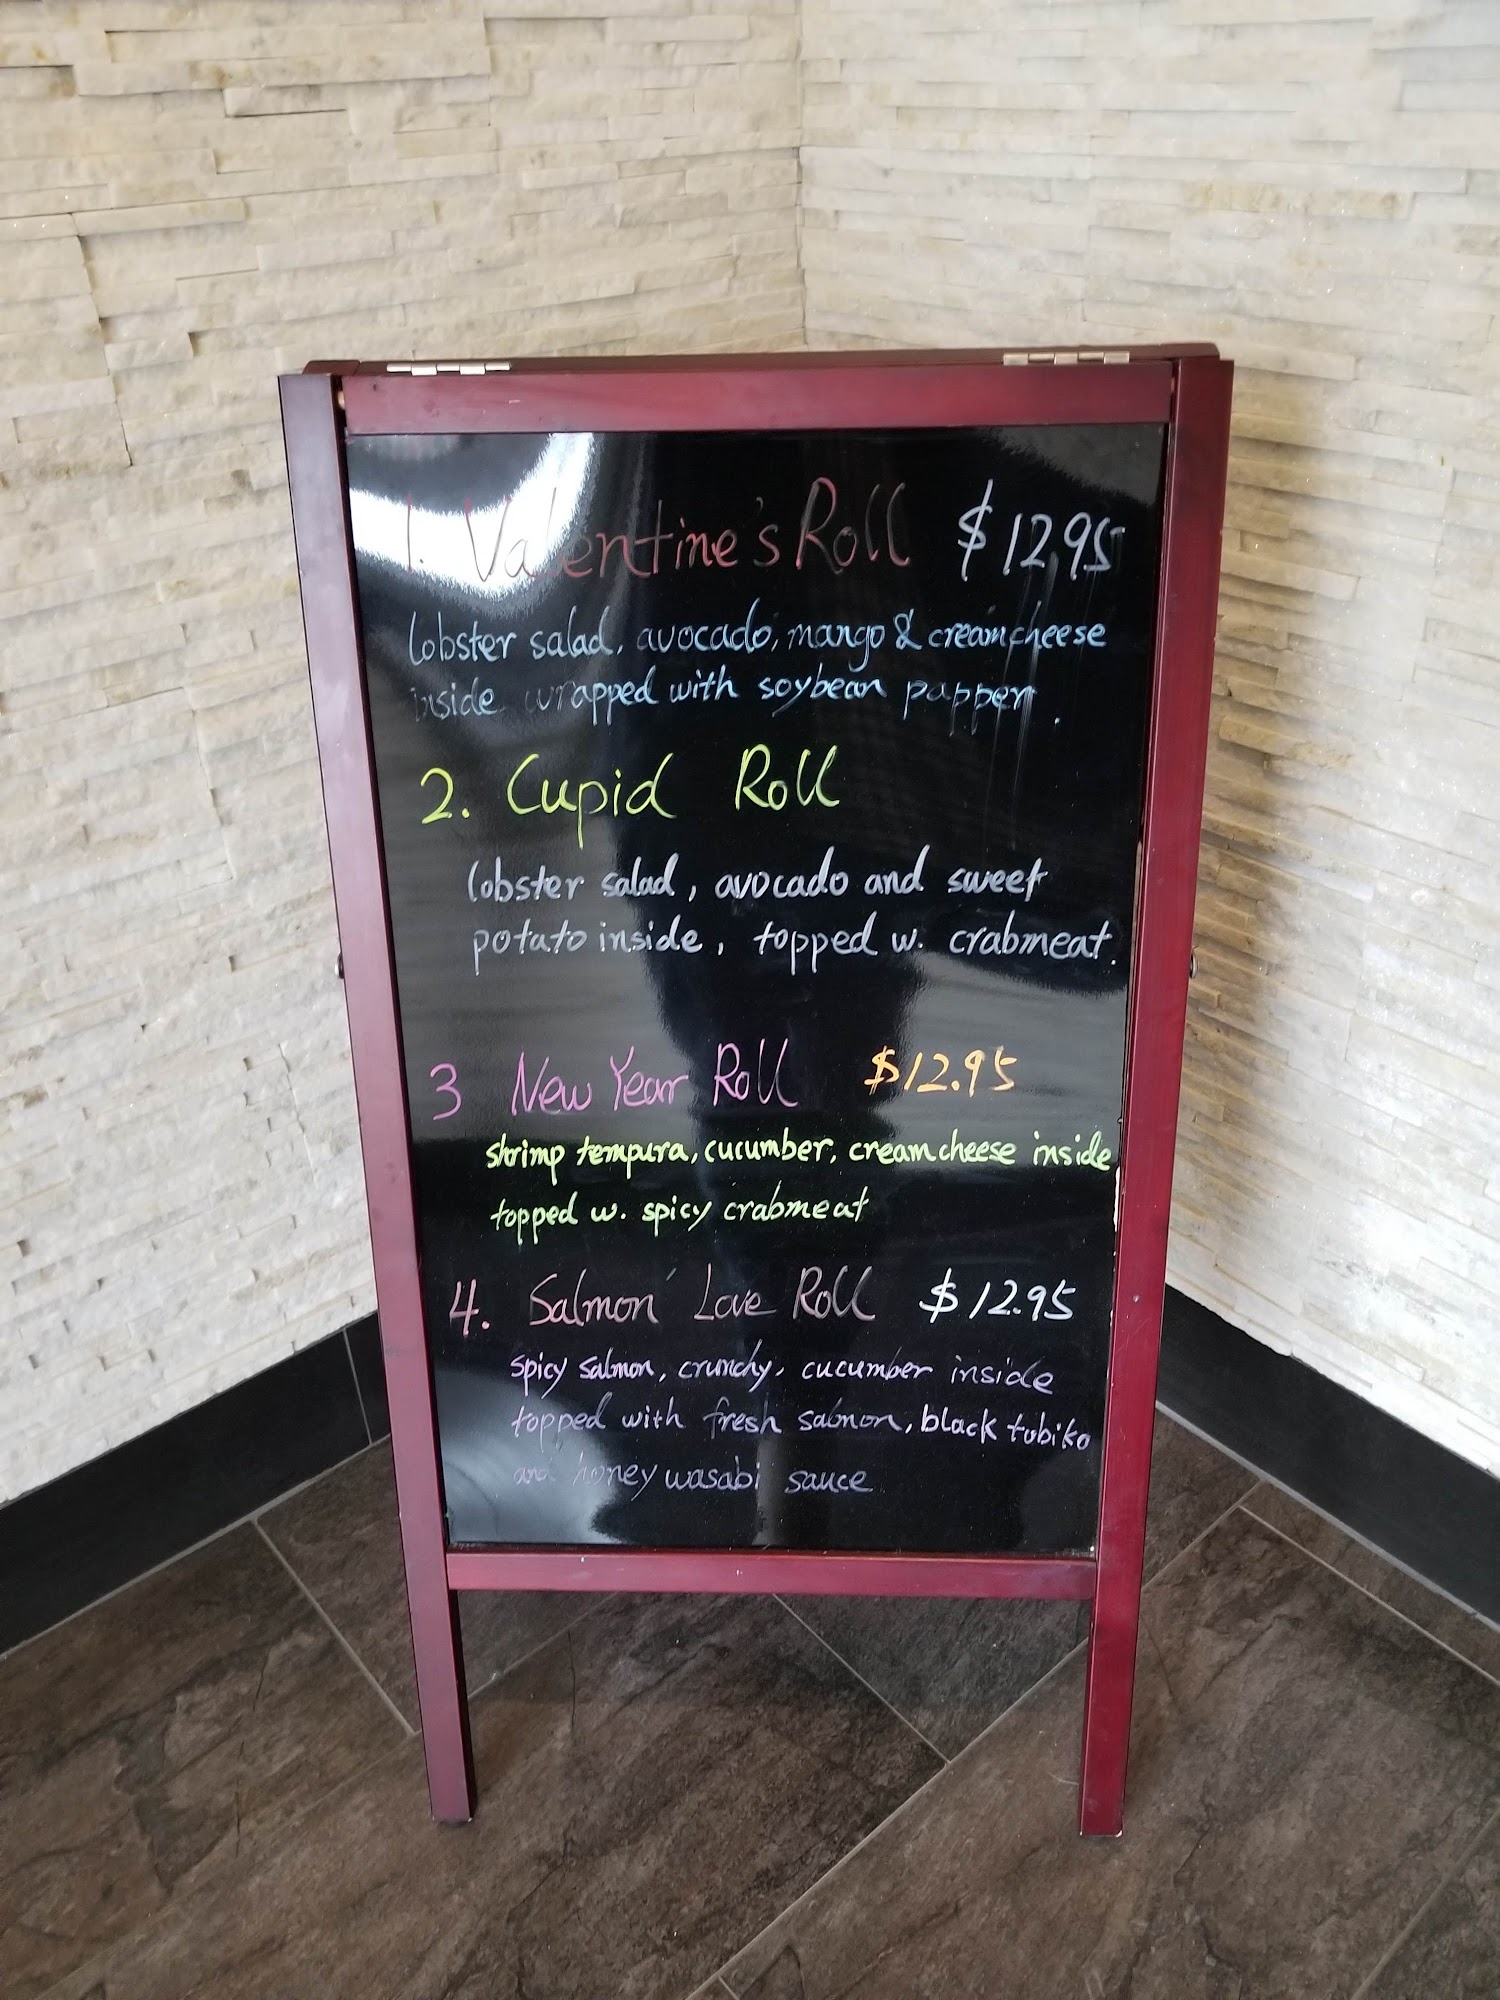 1. Valentine's Roll $12.95
lobster salad, avocado, mango & creamcheese
inside wrapped with soybean papper.
2. Cupid Roll
lobster salad, avocado and sweet
potato inside, topped w. crabmeat.
3 New Year Roll $12.95
shrimp tempura, cucumber, creamcheese inside
topped w. spicy crabmeat
4. Salmon Love Roll $12.95
spicy salmon, crunchy, cucumber inside
topped with fresh salmon, black tobiko
and honey wasabi sauce